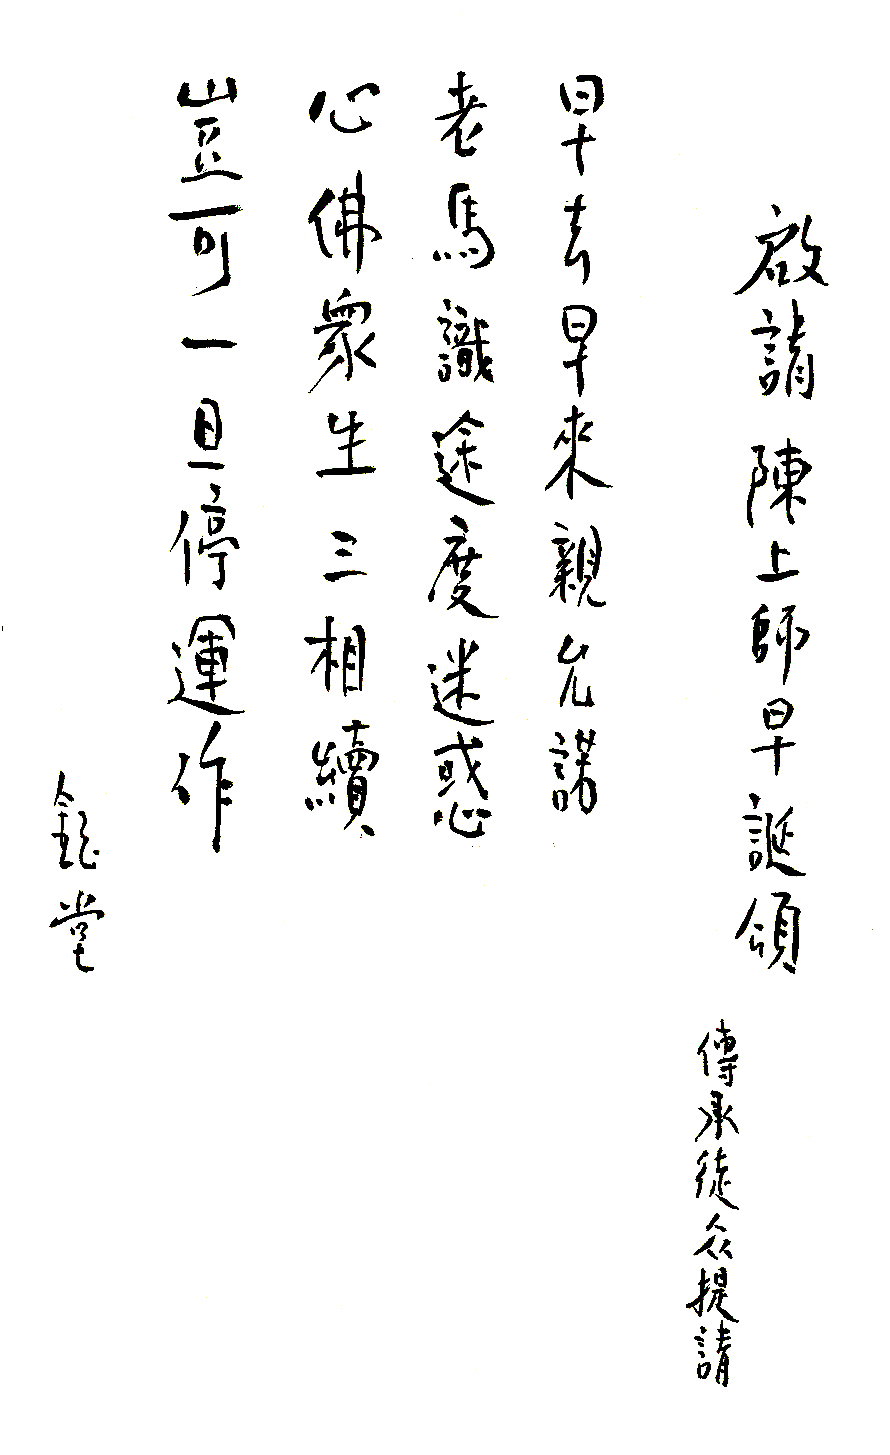 啟請 陳上師早誕頌
傳承徒众提請
早去早來親允諾
老馬識途度迷惑
心佛眾生三相續
豈可一旦停運作
鈺堂